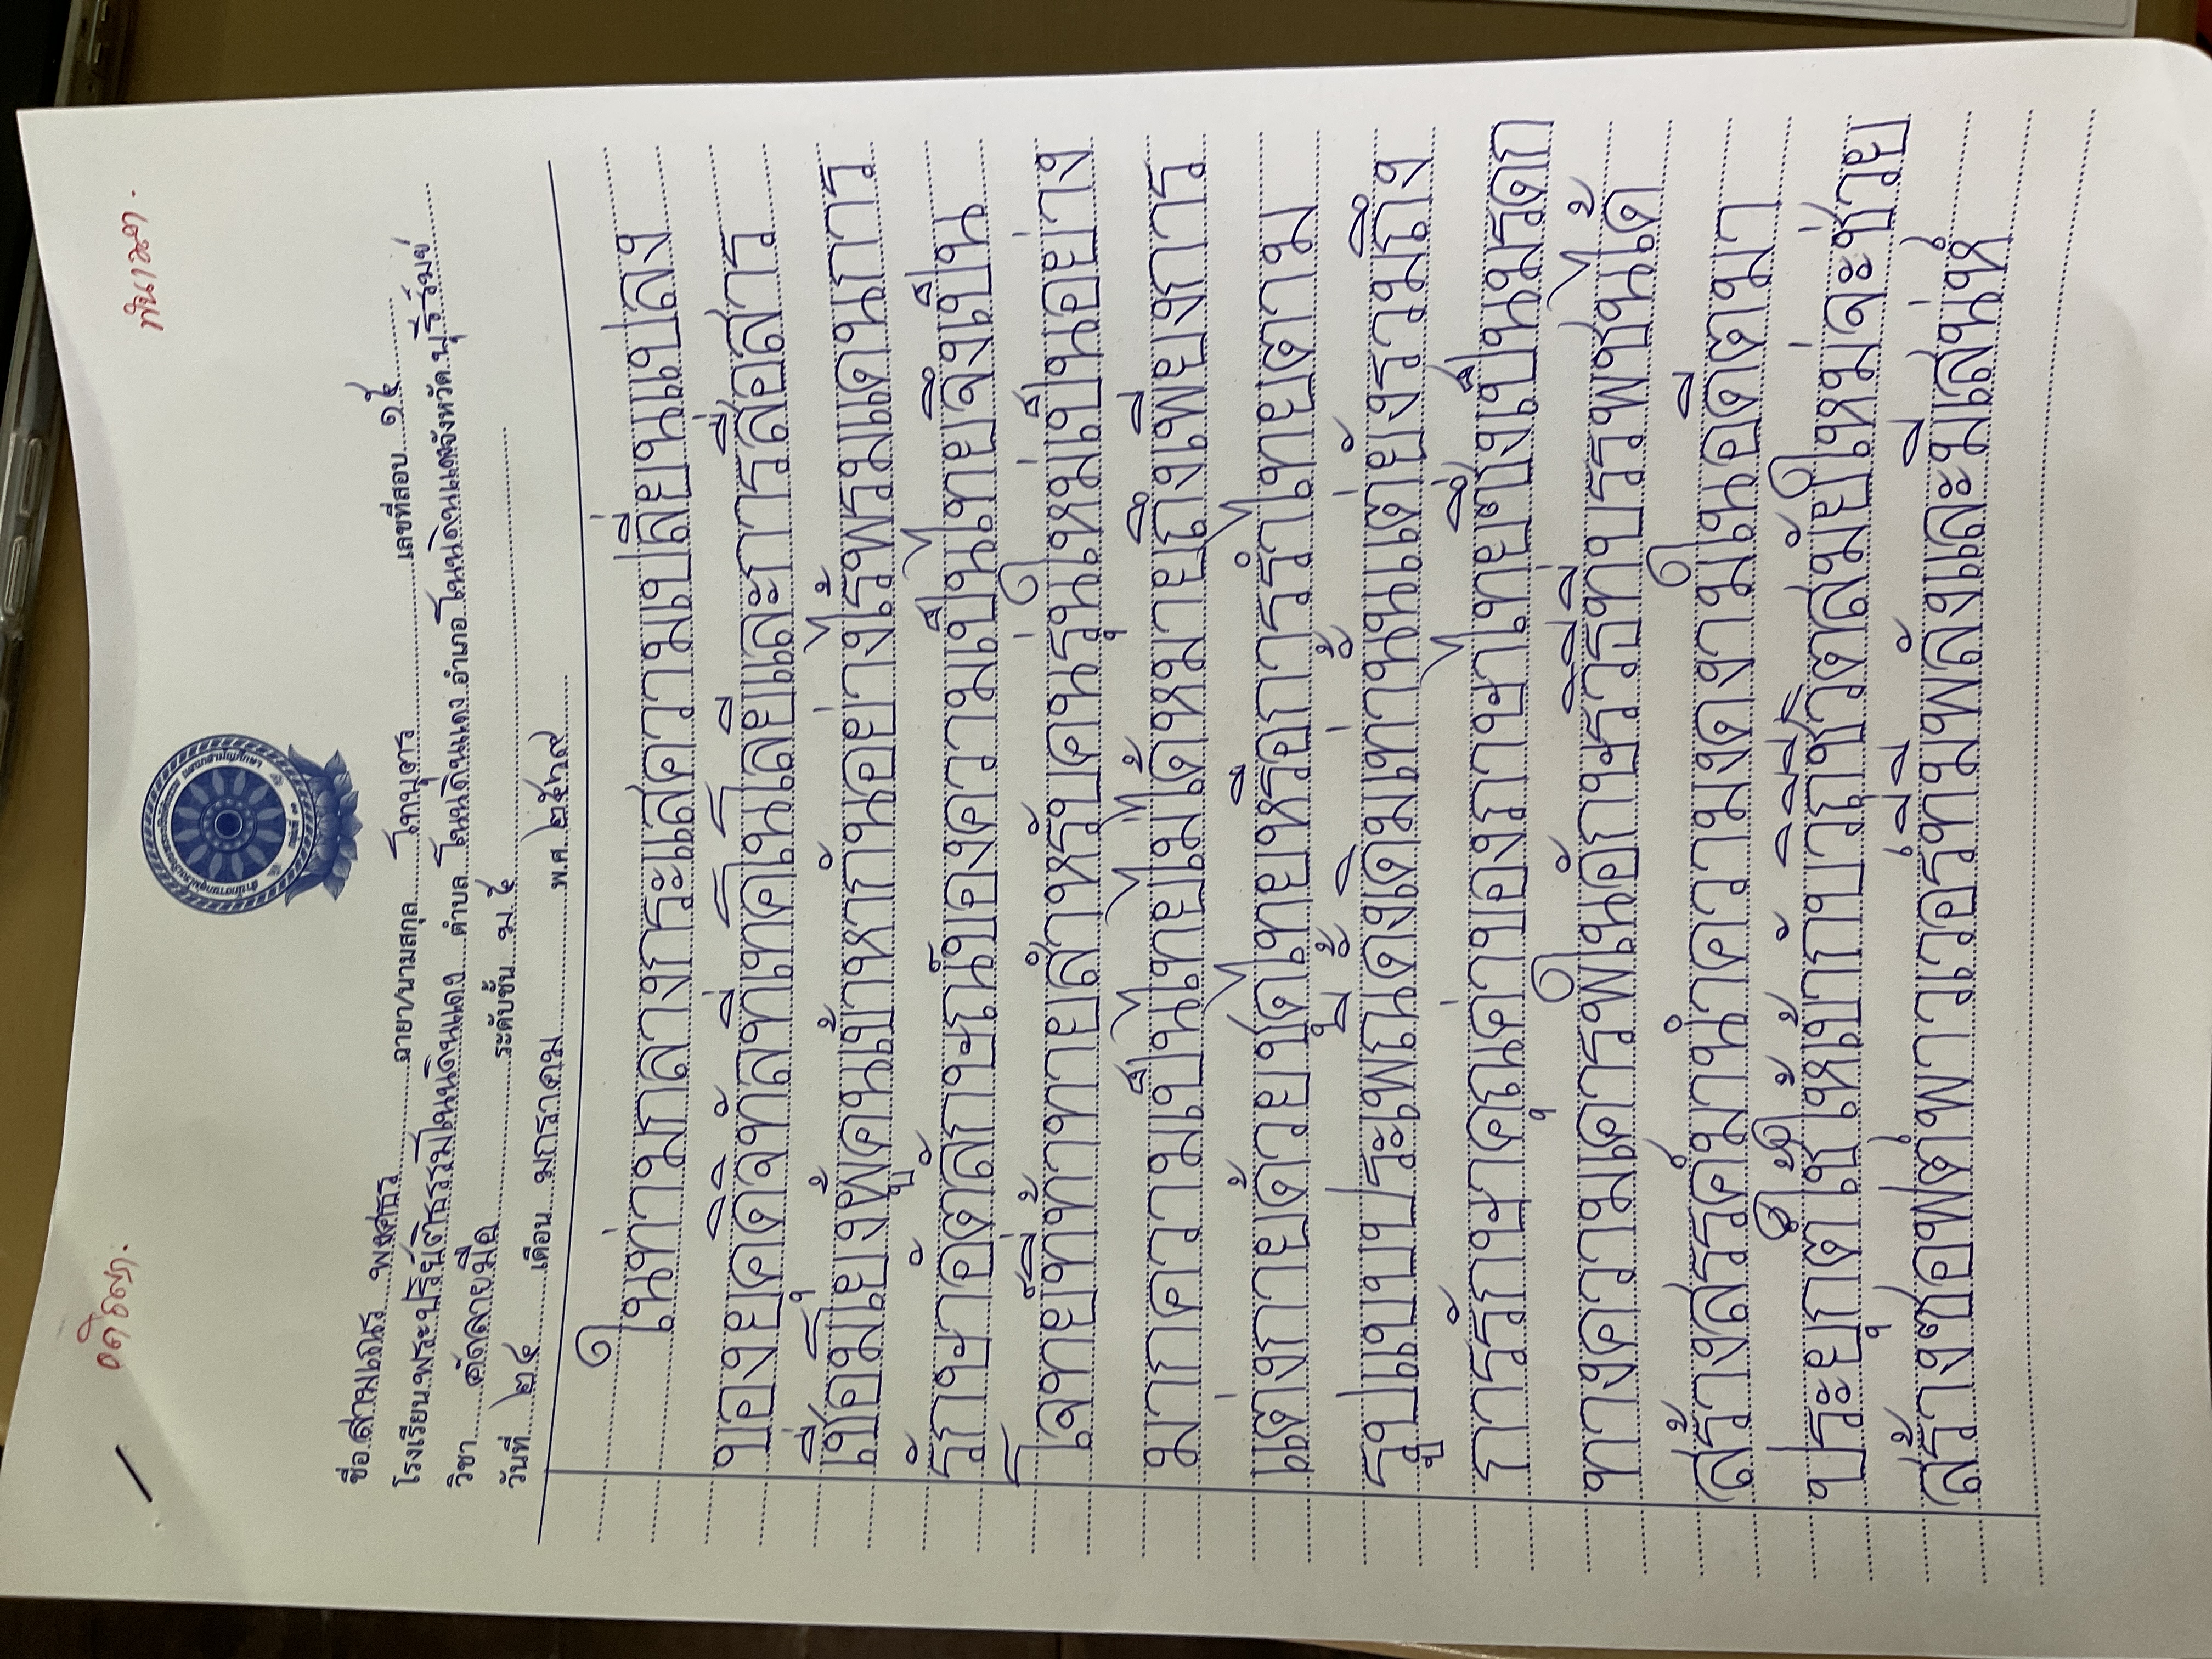 ชื่อ สามเณร พงศธร ฉายา/นามสกุล โทนบุตร เลขที่สอบ ๑๕
โรงเรียน พระปริยัติธรรมโนนดินแดง ตำบล โนนดินแดง อำเภอ โนนดินแดง จังหวัด บุรีรัมย์
วิชา คัดลายมือ ระดับชั้น ม.๕
วันที่ ๒๕ เดือน มกราคม พ.ศ. ๒๕๖๙
ในท่ามกลางกระแสความเปลี่ยนแปลง
ของยุคดิจิทัลที่เทคโนโลยีและการสื่อสาร
เชื่อมโยงผู้คนเข้าหากันอย่างไร้พรมแดนการ
รักษาอัตลักษณ์ของความเป็นไทยจึงเป็น
โจทย์ที่ท้าทายสำหรับคนรุ่นใหม่เป็นอย่าง
มากความเป็นไทยไม่ได้หมายถึงเพียงการ
แต่งกายด้วยชุดไทยหรือการรำไทยตาม
รูปแบบประเพณีดั้งเดิมเท่านั้นแต่ยังรวมถึง
การรักษาคุณค่าของภาษาไทยซึ่งเป็นมรดก
ทางความเคารพในอักษรวิธีที่บรรพชนได้
สร้างสรรค์มานำความงดงามในอดีตมา
ประยุกต์ใช้ให้เข้ากับวิถีชีวิตสมัยใหม่จะช่วย
สร้างซอฟต์พาวเวอร์ที่มีพลังและมีเสน่ห์